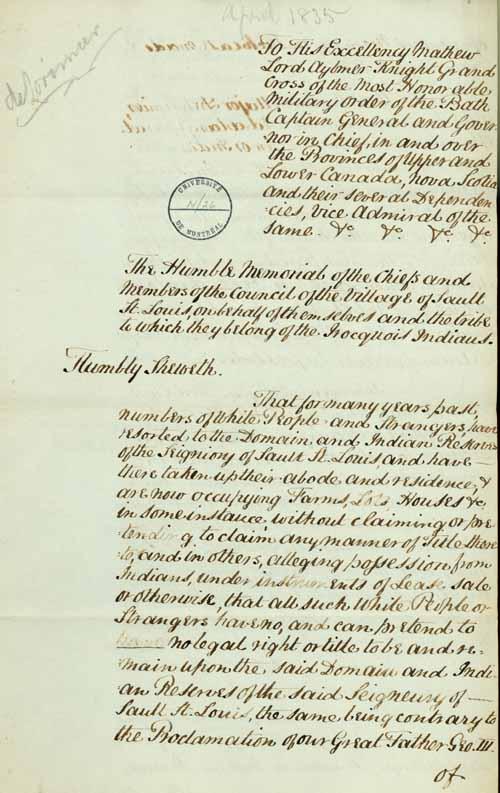 April 1835
de Lorimier
To His Excellency Mathew
Lord Aylmer Knight Grand
Cross of the Most Honorable
Military order of the Bath
Captain General and Gover
nor in Chief, in and over
the Provinces of Upper and
Lower Canada, Nova Scotia
and their several Dependen
cies, Vice Admiral of the
same &c &c &c &c
UNIVERSITÉ
N/26
DE MONTRÉAL
The Humble Memorial of the Chiefs and
Members of the Council of the Village of Sault
St. Louis, on behalf of themselves and the tribe
to which they belong of the Irocquois Indians.
Humbly Sheweth.
That for many years past,
numbers of White People and Strangers have
resorted to the Domain and Indian Reserves
of the Seigniory of Sault St. Louis, and have
there taken up their abode and residence, &
are now occupying Farms, Lots Houses &c,
in some instance, without claiming or pre
tending to claim any manner of Title there
to, and in others, alleging possession from
Indians, under instruments of Lease, sale
or otherwise, that all such White People or
Strangers have no, and can pretend to
have no legal right or title to be and re-
main upon the said Domain and Indi-
an Reserves of the said Seigneury of
Sault St. Louis, the same being contrary to
the Proclamation of our Great Father Geo. III.
of